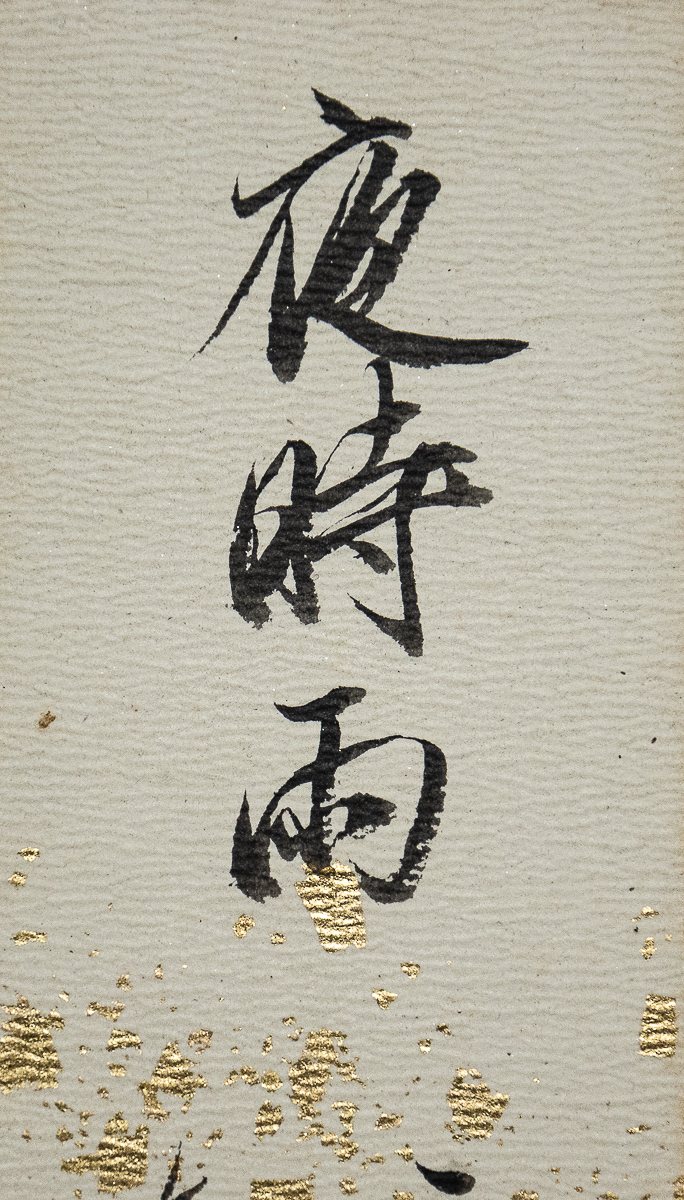 夜時雨